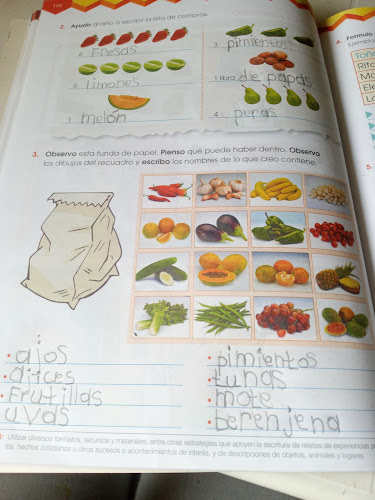 116
2. Ayudo al niño a escribir la lista de compras.
6 Fresas
2 pimientos
5 limones
1 libra de papas
1 melón
4 peras
3. Observo esta funda de papel. Pienso qué puede haber dentro. Observo
los dibujos del recuadro y escribo los nombres de lo que creo contiene.
• ajos
• ajices
• Frutillas
uvas
• pimientos
• tunas
• mote
• berenjena
Utilizar diversos formatos, recursos y materiales, entre otras estrategias que apoyen la escritura de relatos de experiencias
hechos cotidianos u otros sucesos o acontecimientos de interés, y de descripciones de objetos, animales y lugares.
4. Formulo
Ejemplo
5.